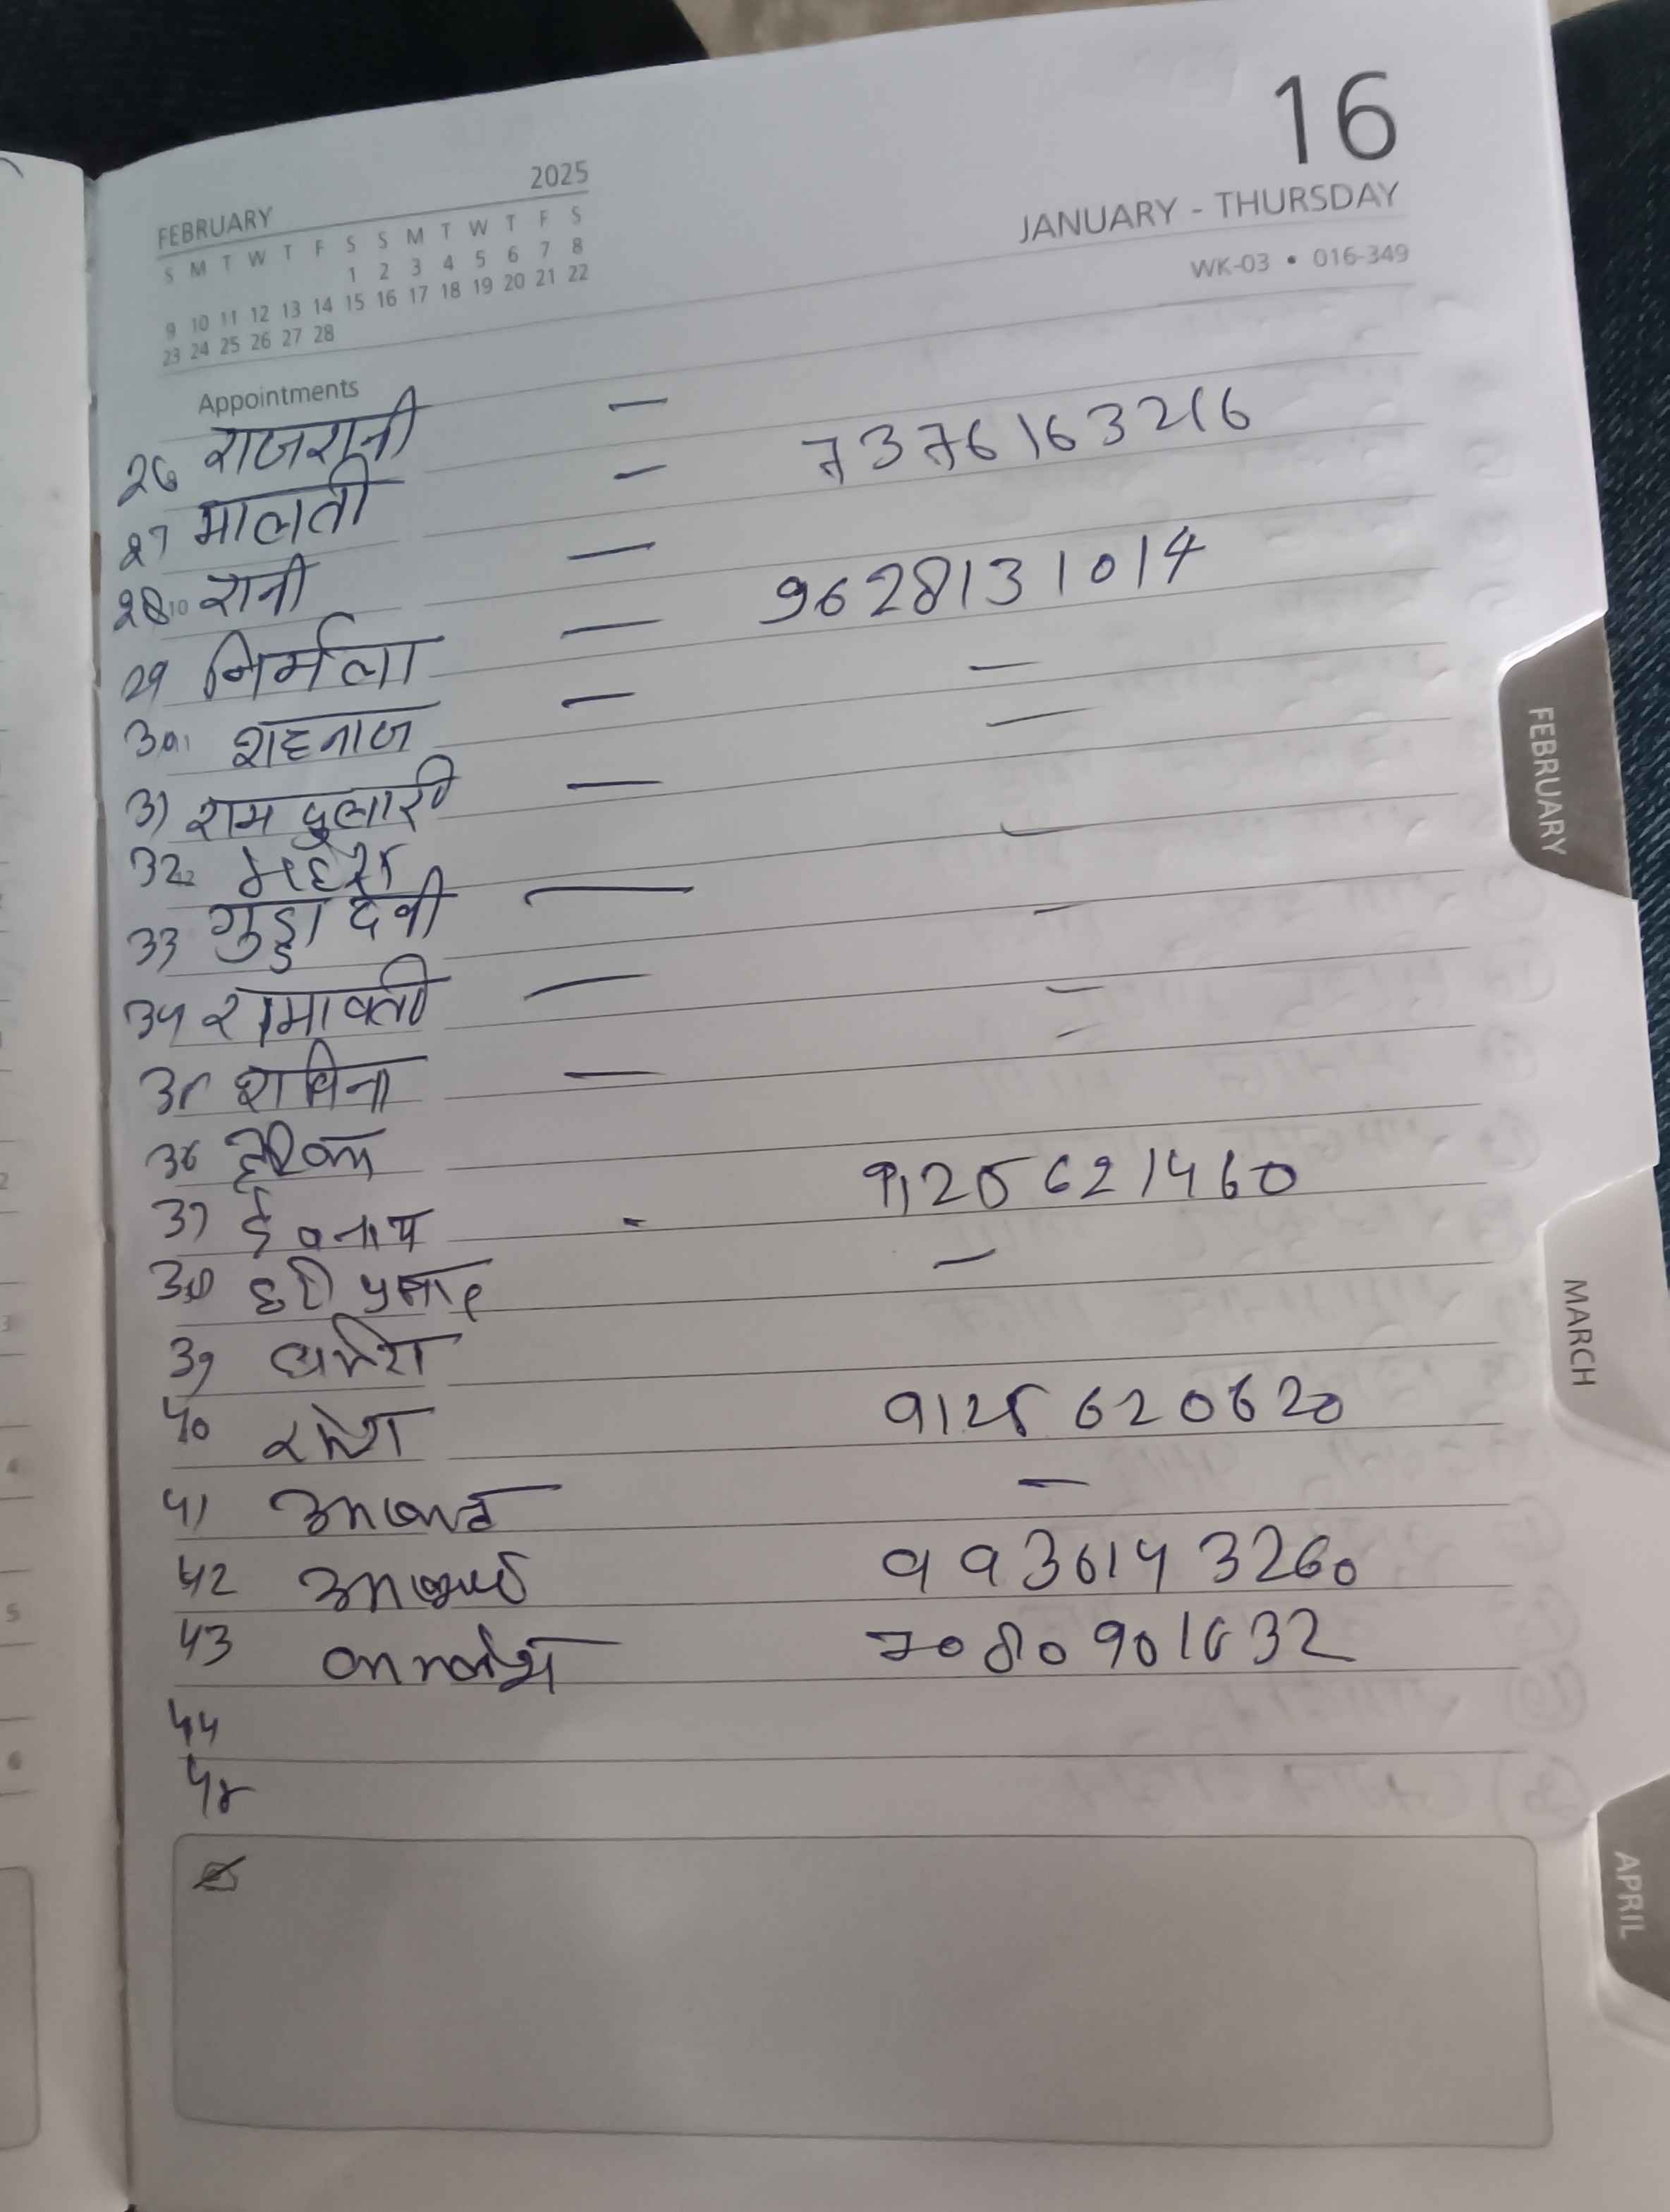 16
JANUARY - THURSDAY
WK-03 • 016-349
FEBRUARY 2025
S M T W T F S S M T W T F S
1 2 3 4 5 6 7 8
9 10 11 12 13 14 15 16 17 18 19 20 21 22
23 24 25 26 27 28
Appointments
26 राजरानी —
27 मालती — 7376163216
28 रानी —
29 निर्मला — 9628131014
30 शहनाज — —
31 राम दुलारी — —
32 महेश —
33 गुड्डा देवी — —
34 रामावती — —
35 शबिना — —
36
37 देवनाथ - 9125621460
38 हरी प्रसाद —
39 धर्मेश
40 राकेश 9125620620
41 —
42 9936143260
43 7080901632
44
45
FEBRUARY
MARCH
APRIL